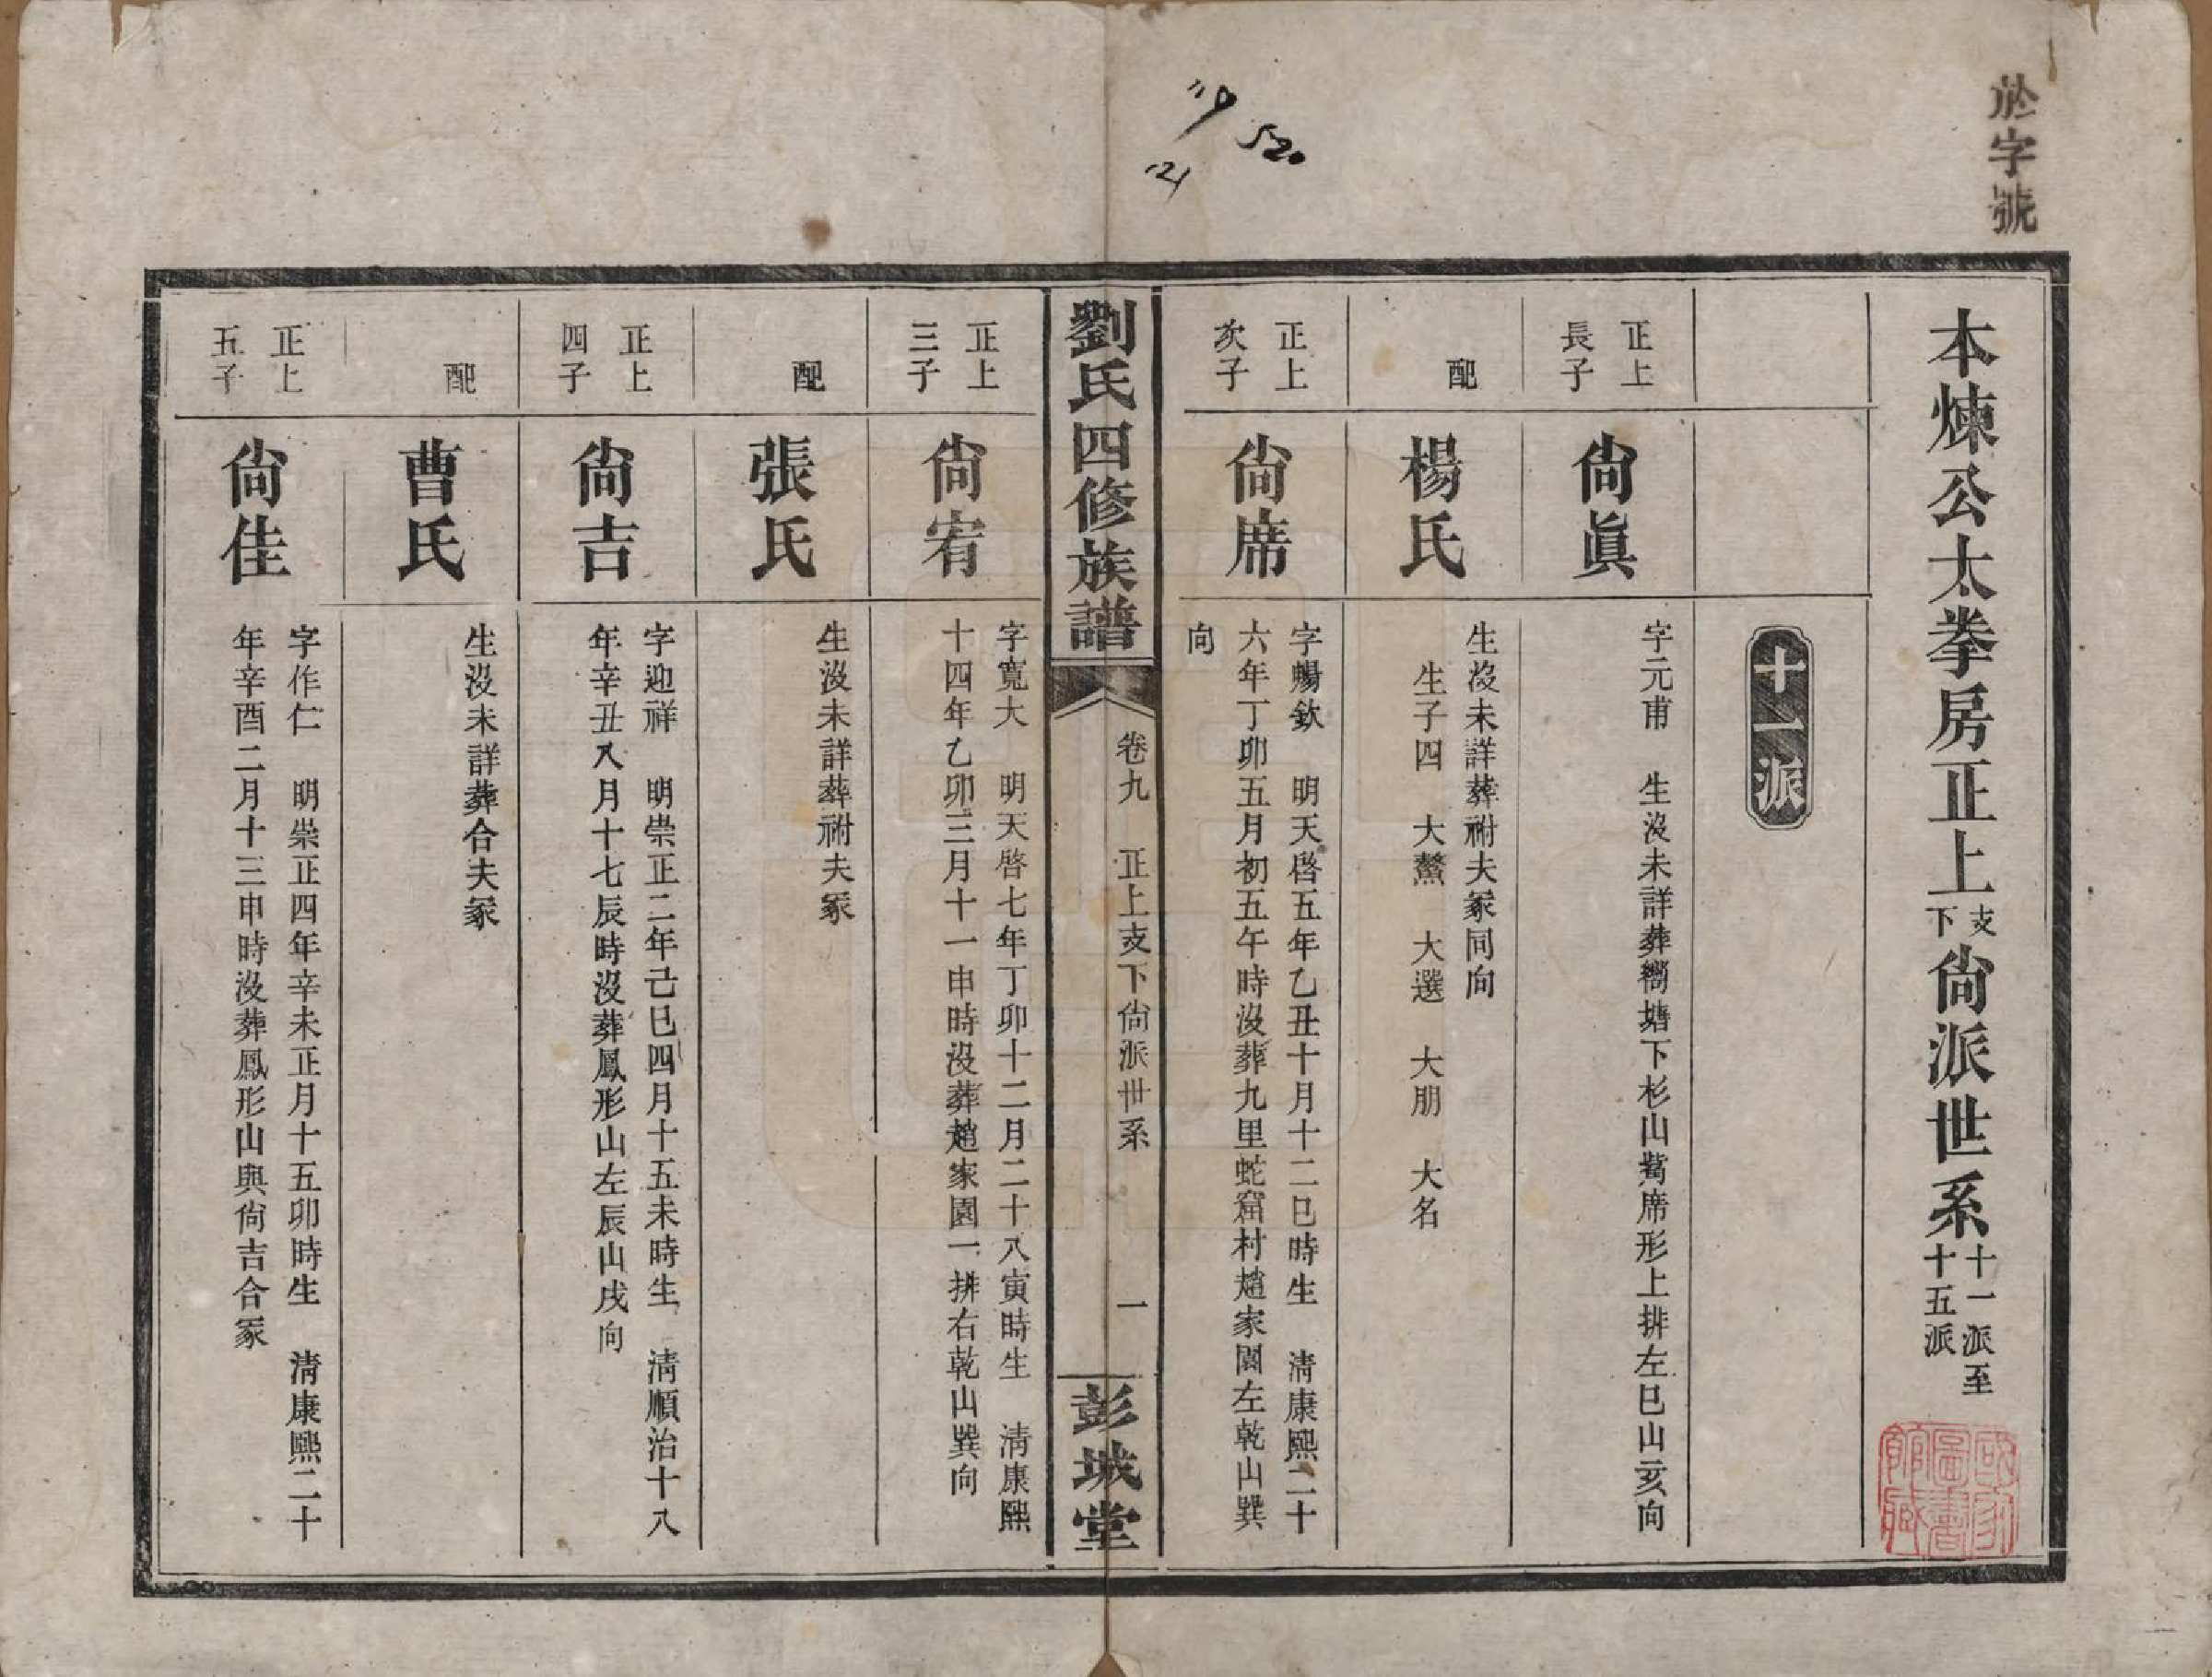 於字號
本煉公太拳房正上支下尙派世系十一派至十五派
國家圖書館藏
十一派
正上長子
尙眞
字元甫　生沒未詳葬衕塘下杉山觜席形上排左巳山亥向
配
楊氏
生沒未詳葬祔夫冢同向
生子四　大鰲　大選　大朋　大名
正上次子
尙席
字暢欽　明天啓五年乙丑十月十二巳時生　淸康熙二十
六年丁卯五月初五午時沒葬九里蛇窟村趙家園左乾山巽
向
劉氏四修族譜
卷九　正上支下尙派世系
一
彭城堂
正上三子
尙宥
字寬大　明天啓七年丁卯十二月二十八寅時生　淸康熙
十四年乙卯三月十一申時沒葬趙家園一排右乾山巽向
配
張氏
生沒未詳葬祔夫冢
正上四子
尙吉
字迎祥　明崇正二年己巳四月十五未時生　淸順治十八
年辛丑八月十七辰時沒葬鳳形山左辰山戌向
配
曹氏
生沒未詳葬合夫冢
正上五子
尙佳
字作仁　明崇正四年辛未正月十五卯時生　淸康熙二十
年辛酉二月十三申時沒葬鳳形山與尙吉合冢
520
21